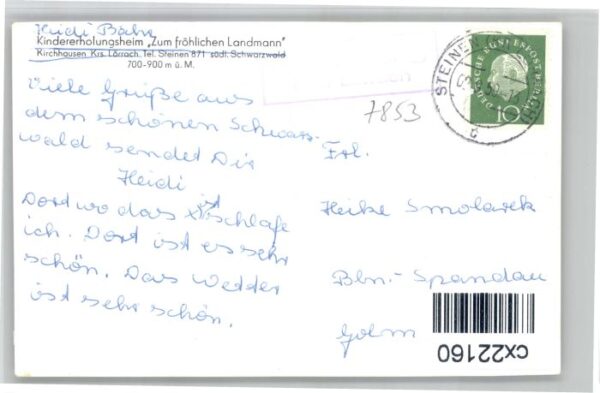 Heidi Bahr
Kindererholungsheim „Zum fröhlichen Landmann"
Kirchhausen Krs. Lörrach, Tel. Steinen 871 südl. Schwarzwald
700-900 m ü. M.
Viele Grüße aus
dem schönen Schwarz-
wald sendet Dir
Heidi
Dort wo das X ist schlafe
ich. Dort ist es sehr
schön. Das Wetter
ist sehr schön.
7853
STEINEN
DEUTSCHE BUNDESPOST BERLIN
10
c
Frl.
Heike Smolarek
Bln.-Spandau
Golm
cx22160